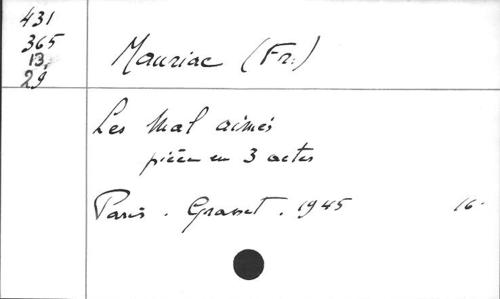 431
365
13.
29
Mauriac (Fr.)
Les Mal aimés
pièce en 3 actes
Paris. Grasset. 1945 16-